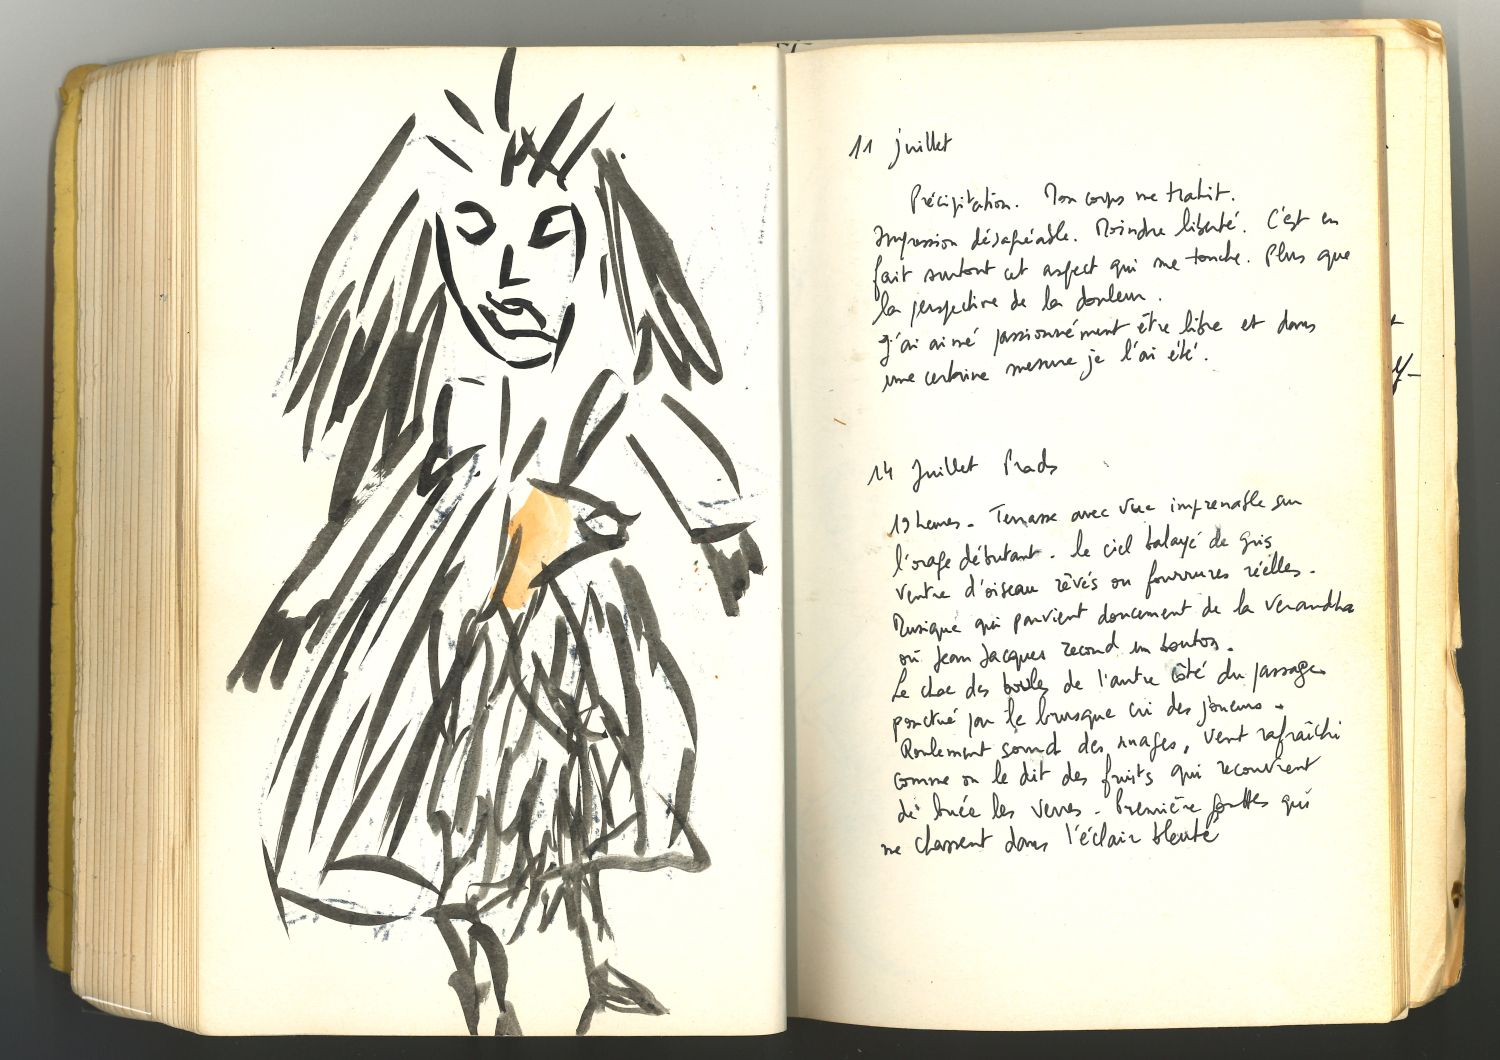 11 juillet
Précipitation. Mon corps me trahit.
Impression désagréable. Moindre liberté. C'est en
fait surtout cet aspect qui me touche. Plus que
la perspective de la douleur.
J'ai aimé passionnément être libre et dans
une certaine mesure je l'ai été.
14 Juillet Prads
19 heures - Terrasse avec vue imprenable sur
l'orage débutant. le ciel balayé de gris
ventre d'oiseau rêvés ou fourrures réelles.
Musique qui parvient doucement de la verandha
où Jean Jacques recoud un bouton.
Le choc des boules de l'autre côté du passage
ponctué par le brusque cri des joueurs.
Roulement sourd des nuages, vent rafraîchi
comme on le dit des fruits qui recouvrent
de buée les verres - Première gouttes qui
me chassent dans l'éclair bleuté